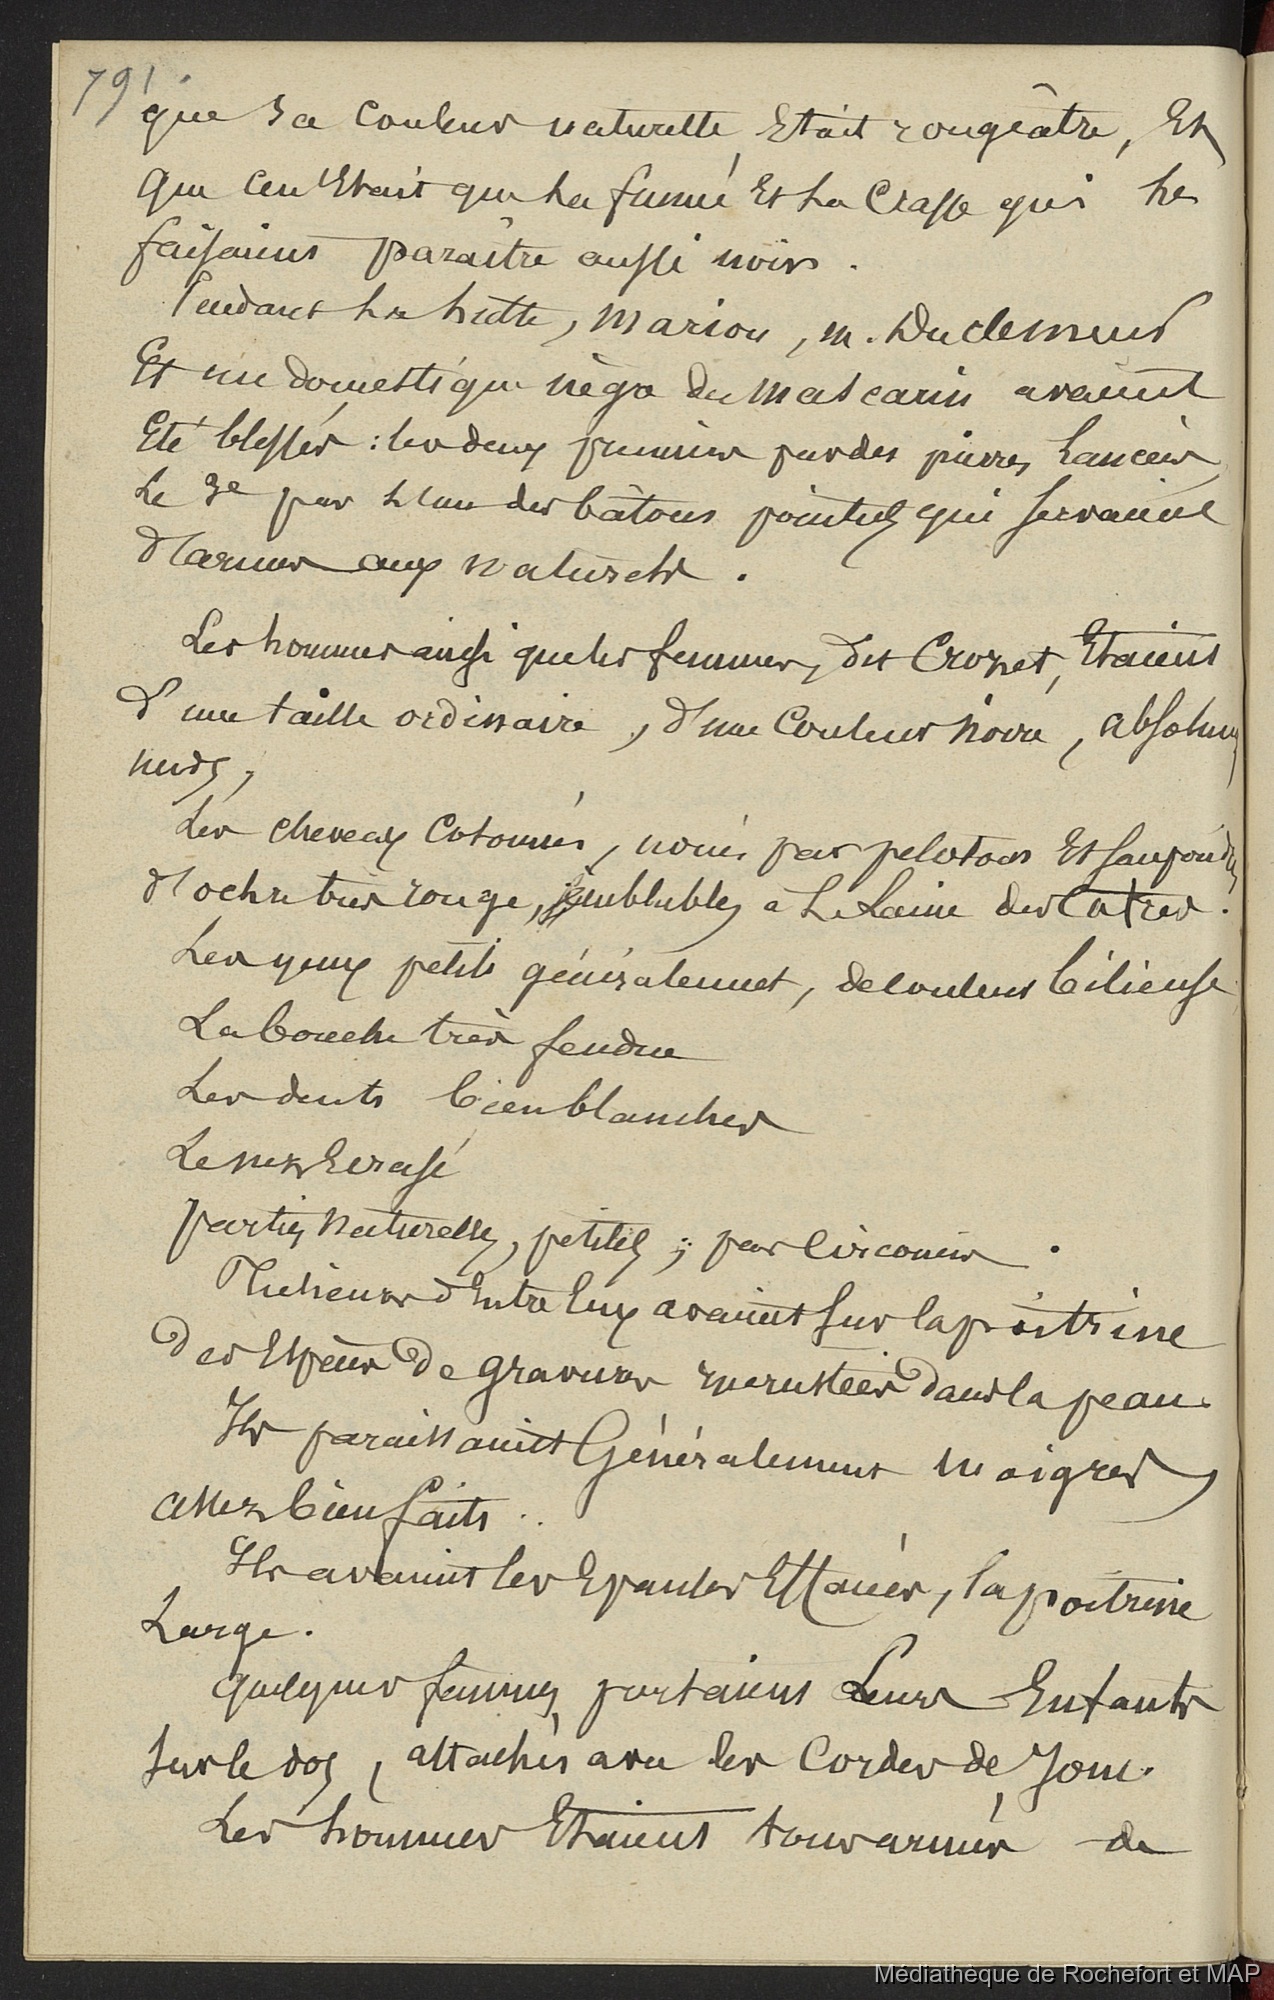 791.
que sa couleur naturelle était rougeâtre, Et
que ce n'Etait que la fumée Et la Crasse qui le
faisaient paraître aussi noir.
Pendant la lutte, Marion, M. Du clesmeur
Et un domestique nègre du Mascarin avaient
Eté blessés : les deux premiers par des pierres lancées
le 3e par l'un des bâtons pointus qui servaient
d'armes aux naturels.
Les hommes ainsi que les femmes, dit Crozet, Etaient
d'une taille ordinaire, d'une Couleur noire, absolument
nuds,
Les cheveux cotonnés, noués par pelotons Et saupoudrés
d'ochre très rouge, semblables a la Laine des Cafres.
Les yeux petits généralement, de couleur bilieuse
La bouche très fendue
Les dents bien blanches
Le nez Ecrasé
parties naturelles, petites ; pas circoncis.
Plusieurs d'Entre Eux avaient sur la poitrine
des Espèces de gravures incrustées dans la peau.
Ils paraissaient Généralement maigres,
assez bien faits..
Ils avaient les Epaules Effacées, la poitrine
Large.
quelques femmes portaient Leurs Enfants
sur le dos, attachés avec des Cordes de Jonc.
Les hommes Etaient tous armés de
Médiathèque de Rochefort et MAP